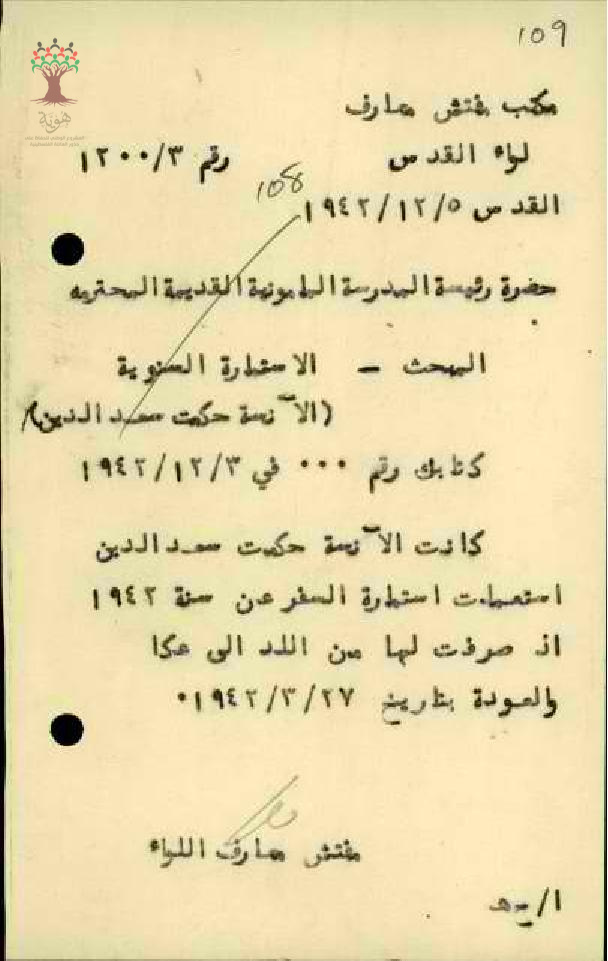 109
هوية
مكتب مفتش معارف
لواء القدس رقم ١٢٠٠/٣
108
القدس ١٩٤٢/١٢/٥
حضرة رئيسة المدرسة المامونية القديمة المحترمه
المبحث - الاستمارة السنوية
(الآنسة حكمت سعد الدين)
كتابك رقم ٠٠٠ في ١٩٤٢/١٢/٣
كانت الآنسة حكمت سعد الدين
استعملت استمارة السفر عن سنة ١٩٤٢
اذ صرفت لها من اللد الى عكا
والعودة بتاريخ ١٩٤٢/٣/٢٧٠
مفتش معارف اللواء